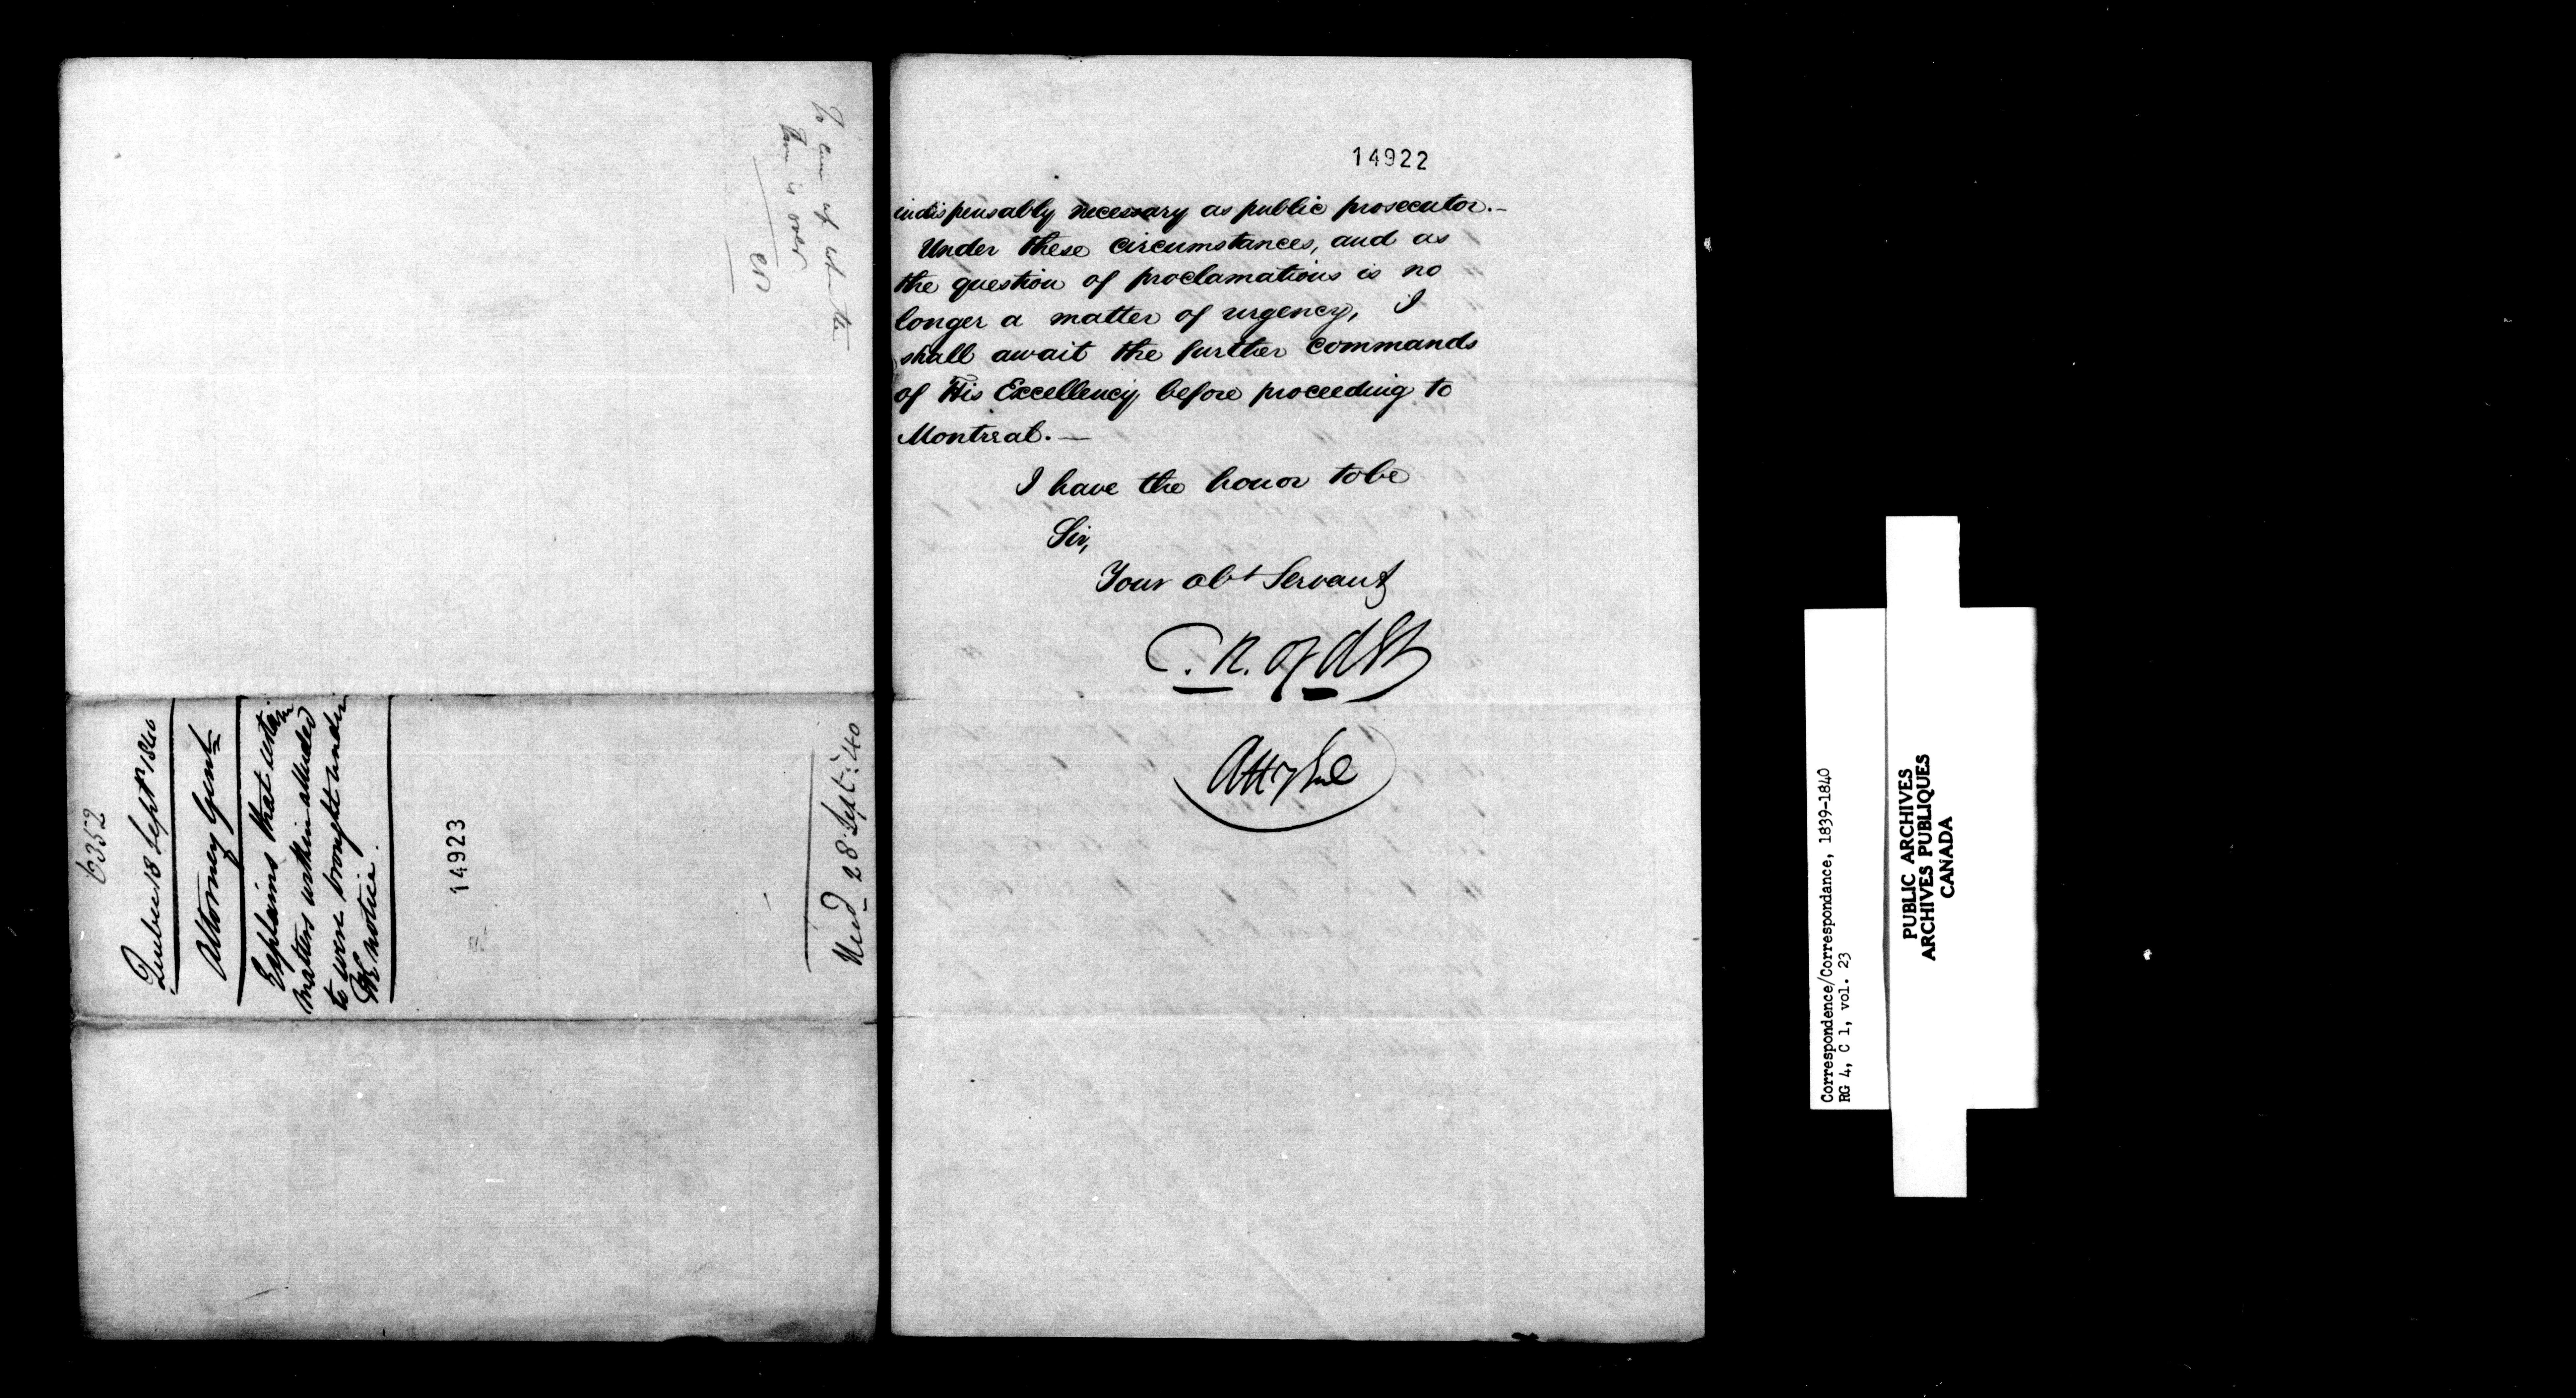 14922
indispensably necessary as public prosecutor.—
Under these circumstances, and as
the question of proclamations is no
longer a matter of urgency, I
shall await the further commands
of His Excellency before proceeding to
Montreal.—
I have the honor to be
Sir,
Your obt Servant
C. R. Ogden
Atty Genl
6352
Quebec 18 Septr 1840
Attorney Genl
Explains that certain
matters within alluded
to were brought under
notice.
14923
28 Sept: 40
is over
Correspondence/Correspondance, 1839-1840
RG 4, C 1, vol. 23
PUBLIC ARCHIVES
ARCHIVES PUBLIQUES
CANADA